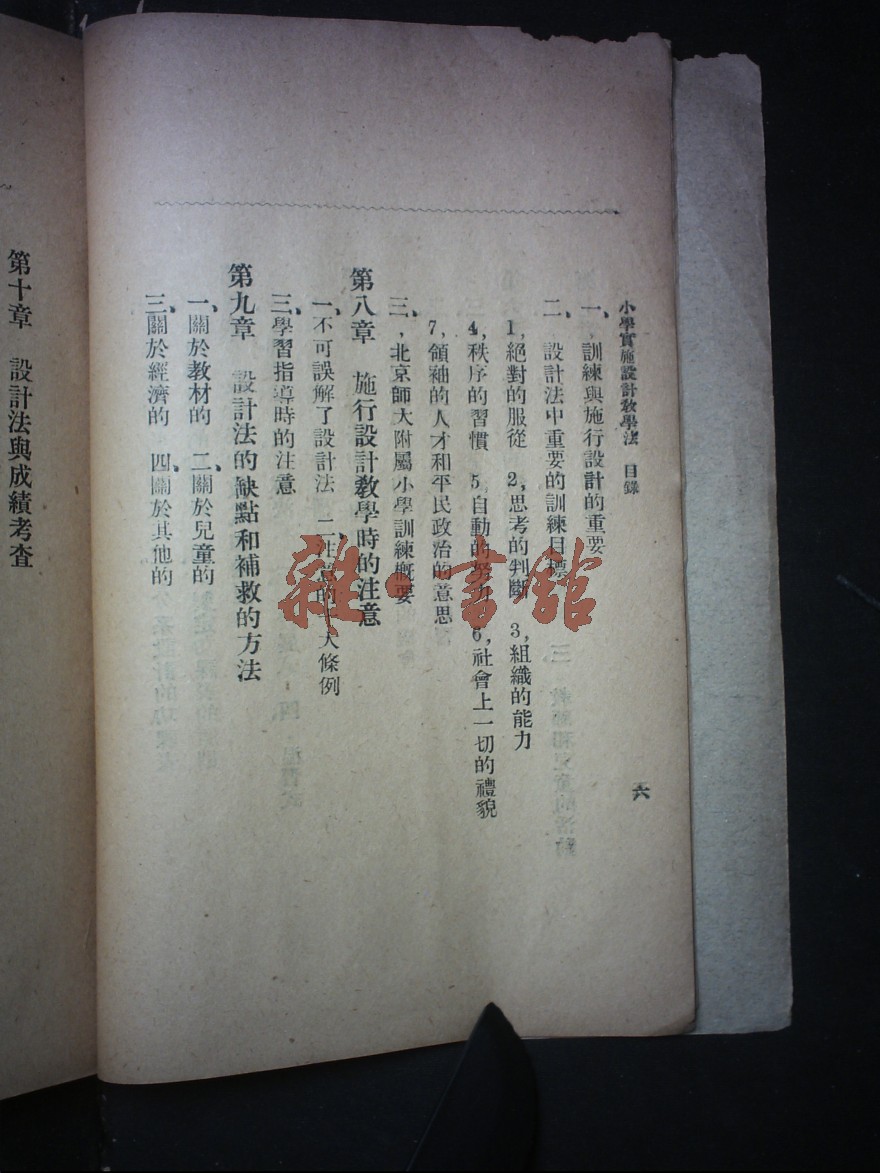 小學實施設計教學法 目錄
六
一、訓練與施行設計的重要
二、設計法中重要的訓練目標
1,絕對的服從 2,思考的判斷 3,組織的能力
4,秩序的習慣 5,自動的努力 6,社會上一切的禮貌
7,領袖的人才和平民政治的意思
三、,北京師大附屬小學訓練概要
第八章 施行設計教學時的注意
一、不可誤解了設計法 二、注意的十大條例
三、學習指導時的注意
第九章 設計法的缺點和補救的方法
一、關於教材的 二、關於兒童的
三、關於經濟的 四、關於其他的
第十章 設計法與成績考查
雜·書館